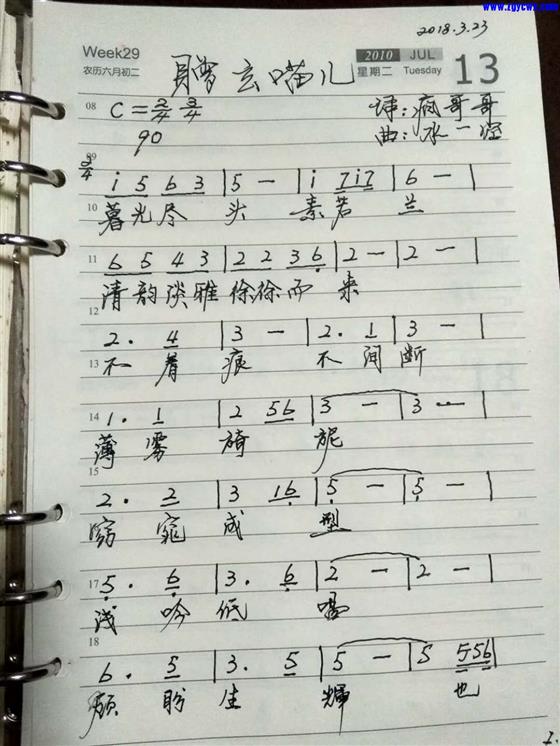 www.zgycwy.com
2018.3.23
Week29 2010 JUL 13
农历六月初二 星期二 Tuesday
赠云喵儿
08 C=2/4 3/4 :病哥哥
90 曲:水一滢
09 2/4 i 5 6 3 | 5 — | i 7i7 | 6 — |
10 暮光尽头 素若兰
11 6 5 4 3 | 2 2 3 6 | 2 — | 2 — |
清韵淡雅徐徐而来
12 2. 4 | 3 — | 2. 1 | 3 — |
13 不着痕 不间断
14 1. 1 | 2 56 | 3 — | 3 — |
薄雾旖旎
15 2. 2 | 3 16 | 5 — | 5 — |
窈窕成型
17 5. 6 | 3. 6 | 2 — | 2 — |
浅吟低唱
18 6. 5 | 3. 5 | 5 — | 5 556 |
顾盼生辉 也
1.